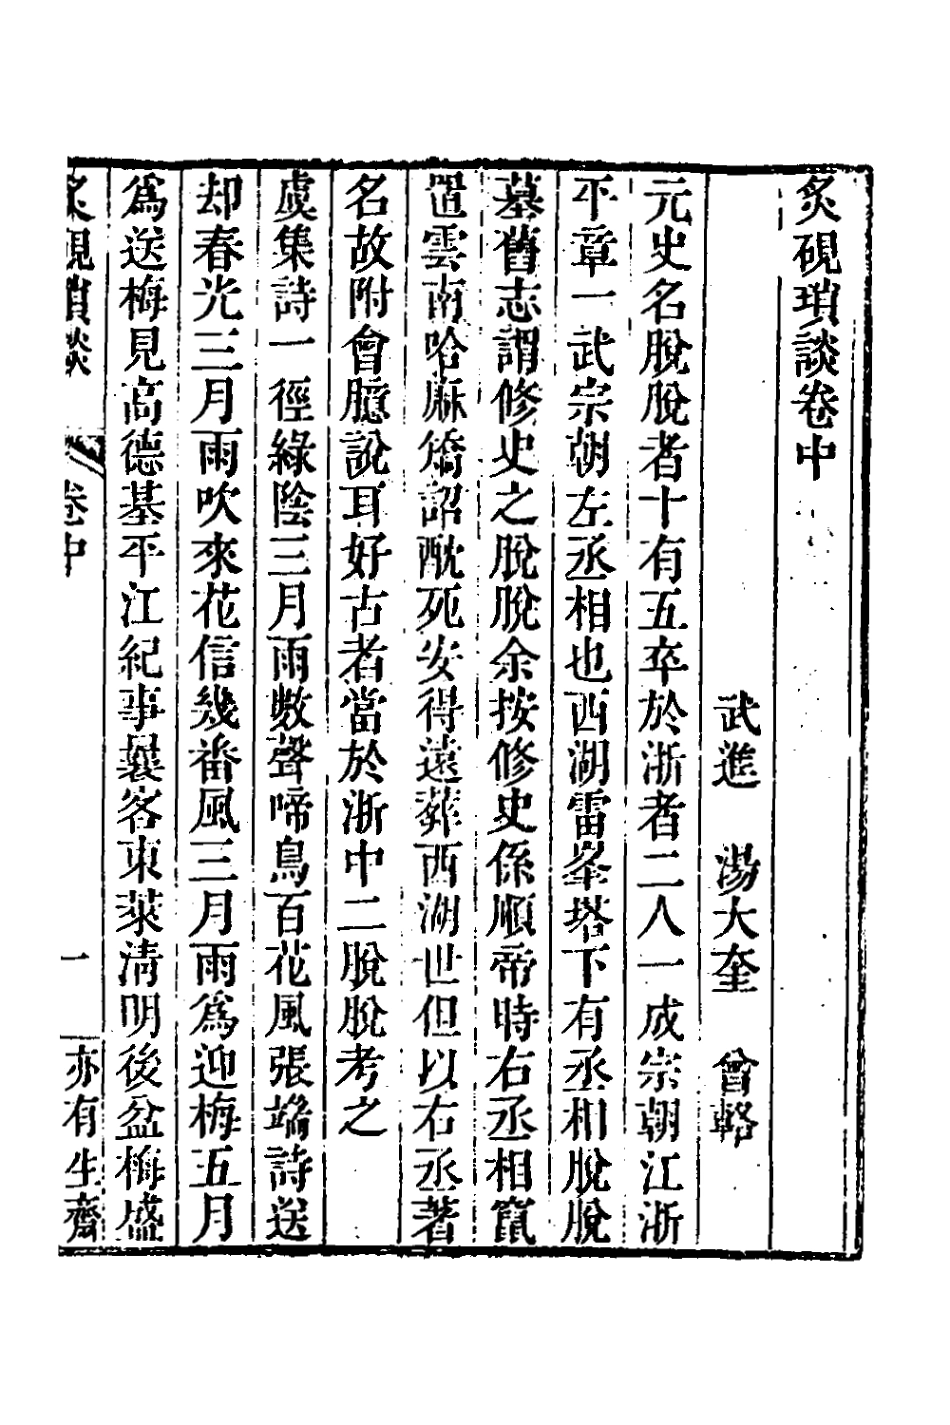 炙硯瑣談卷中
武進 湯大奎 曾輅
元史名脫脫者十有五卒於浙者二人一成宗朝江浙
平章一武宗朝左丞相也西湖雷峯塔下有丞相脫脫
墓舊志謂修史之脫脫余按修史係順帝時右丞相竄
置雲南哈麻矯詔酖死安得遠葬西湖世但以右丞著
名故附會臆說耳好古者當於浙中二脫脫考之
虞集詩一徑綠陰三月雨數聲啼鳥百花風張端詩送
却春光三月雨吹來花信幾番風三月雨爲迎梅五月
爲送梅見高德基平江紀事曩客東萊淸明後盆梅盛
炙硯瑣談 卷中 一 亦有生齋